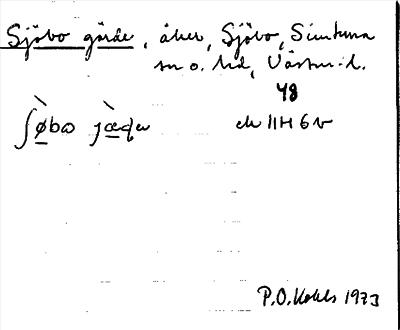 Sjöbo gärde, åker, Sjöbo, Simtuna
sn o. hd, Västm:l.
48
ʃø̀bω jæ̀ɖə ek 11H 6 b
P.O. 1973